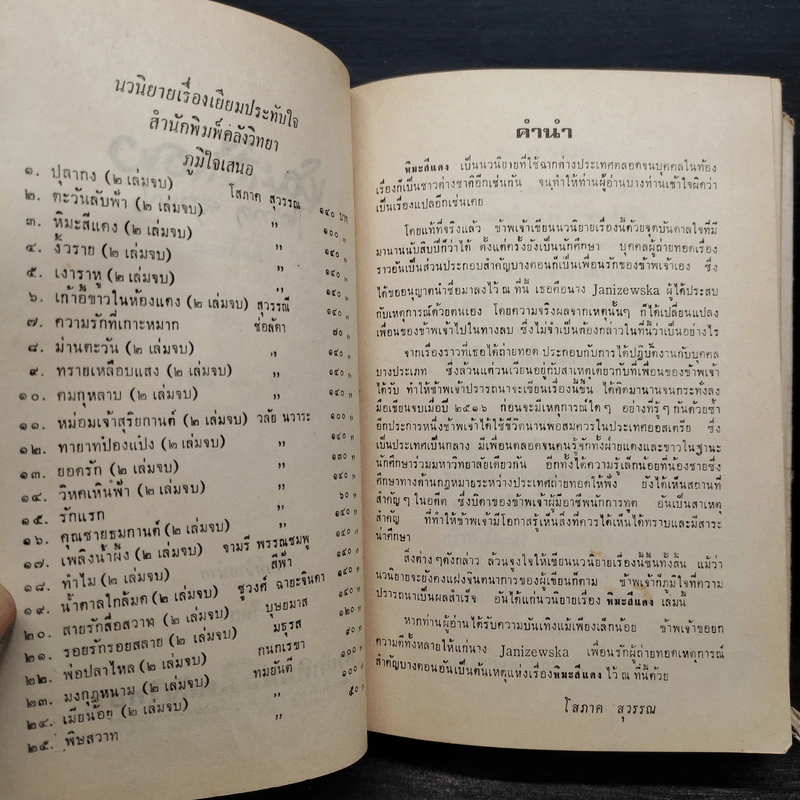 นวนิยายเรื่องเยี่ยมประทับใจ
สำนักพิมพ์คลังวิทยา
ภูมิใจเสนอ
๑. ปุลากง (๒ เล่มจบ) โสภาค สุวรรณ ๑๔๐ บาท
๒. ตะวันลับฟ้า (๒ เล่มจบ) " ๑๐๐ "
๓. หิมะสีแดง (๒ เล่มจบ) " ๑๔๐ "
๔. งิ้วราย (๒ เล่มจบ) " ๑๔๐ "
๕. เงาราหู (๒ เล่มจบ) " ๑๔๐ "
๖. เก้าอี้ขาวในห้องแดง (๒ เล่มจบ) สุวรรณี ๑๔๐ "
๗. ความรักที่เกาะหมาก ช่อลัดา ๗๐ "
๘. ม่านตะวัน (๒ เล่มจบ) " ๑๔๐ "
๙. ทรายเหลือบแสง (๒ เล่มจบ) " ๑๔๐ "
๑๐. คมกุหลาบ (๒ เล่มจบ) " ๑๔๐ "
๑๑. หม่อมเจ้าสุริยกานต์ (๒ เล่มจบ) วลัย นวาระ ๑๐๐ "
๑๒. ทายาทป๋องแป๋ง (๒ เล่มจบ) " ๑๔๐ "
๑๓. ยอดรัก (๒ เล่มจบ) " ๑๓๐ "
๑๔. วิหคเหินฟ้า (๒ เล่มจบ) " ๑๔๐ "
๑๕. รักแรก " ๖๐ "
๑๖. คุณชายธมกานต์ (๒ เล่มจบ) " ๑๔๐ "
๑๗. เพลิงน้ำผึ้ง (๒ เล่มจบ) จามรี พรรณชมพู ๑๔๐ "
๑๘. ทำไม (๒ เล่มจบ) สีฟ้า ๑๔๐ "
๑๙. น้ำตาลใกล้มด (๒ เล่มจบ) ชูวงศ์ ฉายะจินดา ๑๔๐ "
๒๐. สายรักสื่อสวาท (๒ เล่มจบ) บุษยมาส ๑๒๐ "
๒๑. รอยรักรอยสลาย (๒ เล่มจบ) มธุรส ๙๐ "
๒๒. พ่อปลาไหล (๒ เล่มจบ) กนกเรขา ๑๐๐ "
๒๓. มงกุฎหนาม (๒ เล่มจบ) ทมยันตี ๑๐๐ "
๒๔. เมียน้อย (๒ เล่มจบ) " ๕๐ "
๒๕. พิษสวาท "
คำนำ
หิมะสีแดง เป็นนวนิยายที่ใช้ฉากต่างประเทศตลอดจนบุคคลในท้อง
เรื่องก็เป็นชาวต่างชาติอีกเช่นกัน จนทำให้ท่านผู้อ่านบางท่านเข้าใจผิดว่า
เป็นเรื่องแปลอีกเช่นเคย
โดยแท้ที่จริงแล้ว ข้าพเจ้าเขียนนวนิยายเรื่องนี้ด้วยจุดบันดาลใจที่มี
มานานนับสิบปีก็ว่าได้ ตั้งแต่ครั้งยังเป็นนักศึกษา บุคคลผู้ถ่ายทอดเรื่อง
ราวอันเป็นส่วนประกอบสำคัญบางตอนก็เป็นเพื่อนรักของข้าพเจ้าเอง ซึ่ง
ได้ขออนุญาตนำชื่อมาลงไว้ ณ ที่นี้ เธอคือนาง Janizewska ผู้ได้ประสบ
กับเหตุการณ์ด้วยตนเอง โดยความจริงผลจากเหตุนั้นๆ ก็ได้เปลี่ยนแปลง
เพื่อนของข้าพเจ้าไปในทางลบ ซึ่งไม่จำเป็นต้องกล่าวในที่นี้ว่าเป็นอย่างไร
จากเรื่องราวที่เธอได้ถ่ายทอด ประกอบกับการได้ปฏิบัติงานกับบุคคล
บางประเภท ซึ่งล้วนแต่วนเวียนอยู่กับสาเหตุเดียวกับที่เพื่อนของข้าพเจ้า
ได้รับ ทำให้ข้าพเจ้าปรารถนาจะเขียนเรื่องนี้ขึ้น ได้คิดมานานจนกระทั่งลง
มือเขียนจบเมื่อปี ๒๕๑๖ ก่อนจะมีเหตุการณ์ใดๆ อย่างที่รู้ๆ กันด้วยซ้ำ
อีกประการหนึ่งข้าพเจ้าได้ใช้ชีวิตนานพอสมควรในประเทศออสเตรีย ซึ่ง
เป็นประเทศเป็นกลาง มีเพื่อนตลอดจนคนรู้จักทั้งฝ่ายแดงและขาวในฐานะ
นักศึกษาร่วมมหาวิทยาลัยเดียวกัน อีกทั้งได้ความรู้เล็กน้อยที่น้องชายซึ่ง
ศึกษาทางด้านกฎหมายระหว่างประเทศถ่ายทอดให้ฟัง ยังได้เห็นสถานที่
สำคัญๆ ในอดีต ซึ่งบิดาของข้าพเจ้าผู้มีอาชีพนักการทูต อันเป็นสาเหตุ
สำคัญ ที่ทำให้ข้าพเจ้ามีโอกาสรู้เห็นสิ่งที่ควรได้เห็นได้ทราบและมีสาระ
น่าศึกษา
สิ่งต่างๆดังกล่าว ล้วนจูงใจให้เขียนนวนิยายเรื่องนี้ขึ้นทั้งสิ้น แม้ว่า
นวนิยายจะยังคงแฝงจินตนาการของผู้เขียนก็ตาม ข้าพเจ้าก็ภูมิใจที่ความ
ปรารถนาเป็นผลสำเร็จ อันได้แก่นวนิยายเรื่อง หิมะสีแดง เล่มนี้
หากท่านผู้อ่านได้รับความบันเทิงแม้เพียงเล็กน้อย ข้าพเจ้าขอยก
ความดีทั้งหลายให้แก่นาง Janizewska เพื่อนรักผู้ถ่ายทอดเหตุการณ์
สำคัญบางตอนอันเป็นต้นเหตุแห่งเรื่องหิมะสีแดง ไว้ ณ ที่นี้ด้วย
โสภาค สุวรรณ